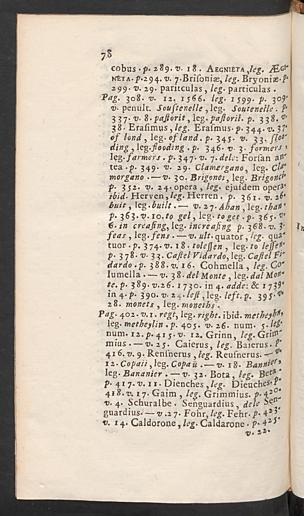 78
cobus. p. 289. v. 18. AEGNIETA, leg. ÆG-
NETA. p. 294. v. 7. Brifoniæ, leg. Bryoniæ. p.
299. v. 29. pariiculas, leg. particulas.
Pag. 308. v. 12. 1566. leg. 1599. p. 309.
v. penult. Soustenelle, leg. Soutenelle. p.
337. v. 8. pastorit, leg. pastoril. p. 338. v.
38. Erasimus, leg. Erasmus. p. 344. v. 37.
of lond, leg. of land. p. 345. v. 33. flot-
ding, leg. flooding. p. 346. v. 3. formers,
leg. farmers. p. 347. v. 7. del: Forsan an-
tea. p. 349. v. 29. Clamergano, leg. Cla-
morgano. — v. 30. Brigonte, leg. Brigonci.
p. 352. v. 24. opera, leg. ejusdem opera.
ibid. Herven, leg. Herren. p. 361. v. 26.
buit, leg. built. — v. 27. dhan, leg. than.
p. 363. v. 10. to gel, leg. to get. p. 365. v.
6. in creasing, leg. increasing. p. 368. v. 3.
feas, leg. fens. — v. ult. quator, leg. quat-
tuor. p. 374. v. 18. tolessen, leg. to lessen.
p. 378. v. 33. Castel Vidardo, leg. Castel Fi-
dardo. p. 388. v. 16. Cohmella, leg. Co-
lumella. — v. 38. del Monte, leg. dal Mon-
te. p. 389. v. 26. 1730. in 4. adde: & 1739.
in 4. p. 390. v. 24. lest, leg. left. p. 395. v.
28. monets, leg. moneths.
Pag. 402. v. 1. regt, leg. right. ibid. metheyhn,
leg. metheylin. p. 405. v. 26. num. 5. leg.
num. 12. p. 415. v. 12. Grinn, leg. Grim-
mius. — v. 25. Caierus, leg. Baierus. p.
416. v. 9. Rensnerus, leg. Reusnerus. — v.
12. Copaii, leg. Copaii. — v. 18. Bannier,
leg. Bananier. — v. 32. Bota, leg. Beta.
p. 417. v. 11. Dienches, leg. Dieuches. p.
418. v. 17. Gaim, leg. Grimmius. p. 420.
v. 4. Schuralbe. Senguardius, dele Sen-
guardius. — v. 27. Fohr, leg. Fehr. p. 423.
v. 14. Caldorone, leg. Caldarone. p. 425.
v. 22.